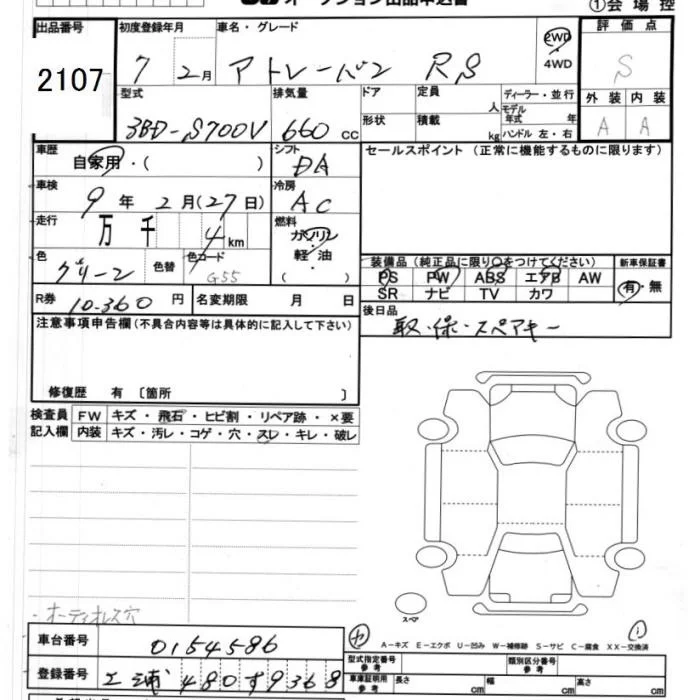 オークション出品申込書
①会場控
出品番号 初度登録年月 車名・グレード 評価点
2107 7 2月 アトレーバン RS 2WD 4WD S
型式 排気量 ドア 定員 人 ディーラー・並行 外装 内装
3BD-S700V 660cc 形状 積載 kg モデル年式 年 ハンドル 左・右 A A
車歴 シフト セールスポイント (正常に機能するものに限ります)
自家用・( ) DA
車検 冷房
9年 2月(27日) AC
走行 燃料
万 千 4km ガソリン
軽油
( )
色 色替 色コード 装備品 (純正品に限り○をつけてください) 新車保証書
グリーン G55 PS PW ABS エアB AW 有・無
SR ナビ TV カワ
R券 10.360円 名変期限 月 日 後日品
取・保・スペアキー
注意事項申告欄(不具合内容等は具体的に記入して下さい)
修復歴 有 〔箇所 〕
検査員 FW キズ・飛石・ヒビ割・リペア跡・×要
記入欄 内装 キズ・汚レ・コゲ・穴・スレ・キレ・破レ
・オーディオレス穴
スペア
A-キズ E-エクボ U-凹み W-補修跡 S-サビ C-腐食 XX-交換済
車台番号 0154586
型式指定番号 参考 類別区分番号 参考
登録番号 480 9368
車庫証明用 参考 長さ cm 幅 cm 高さ cm